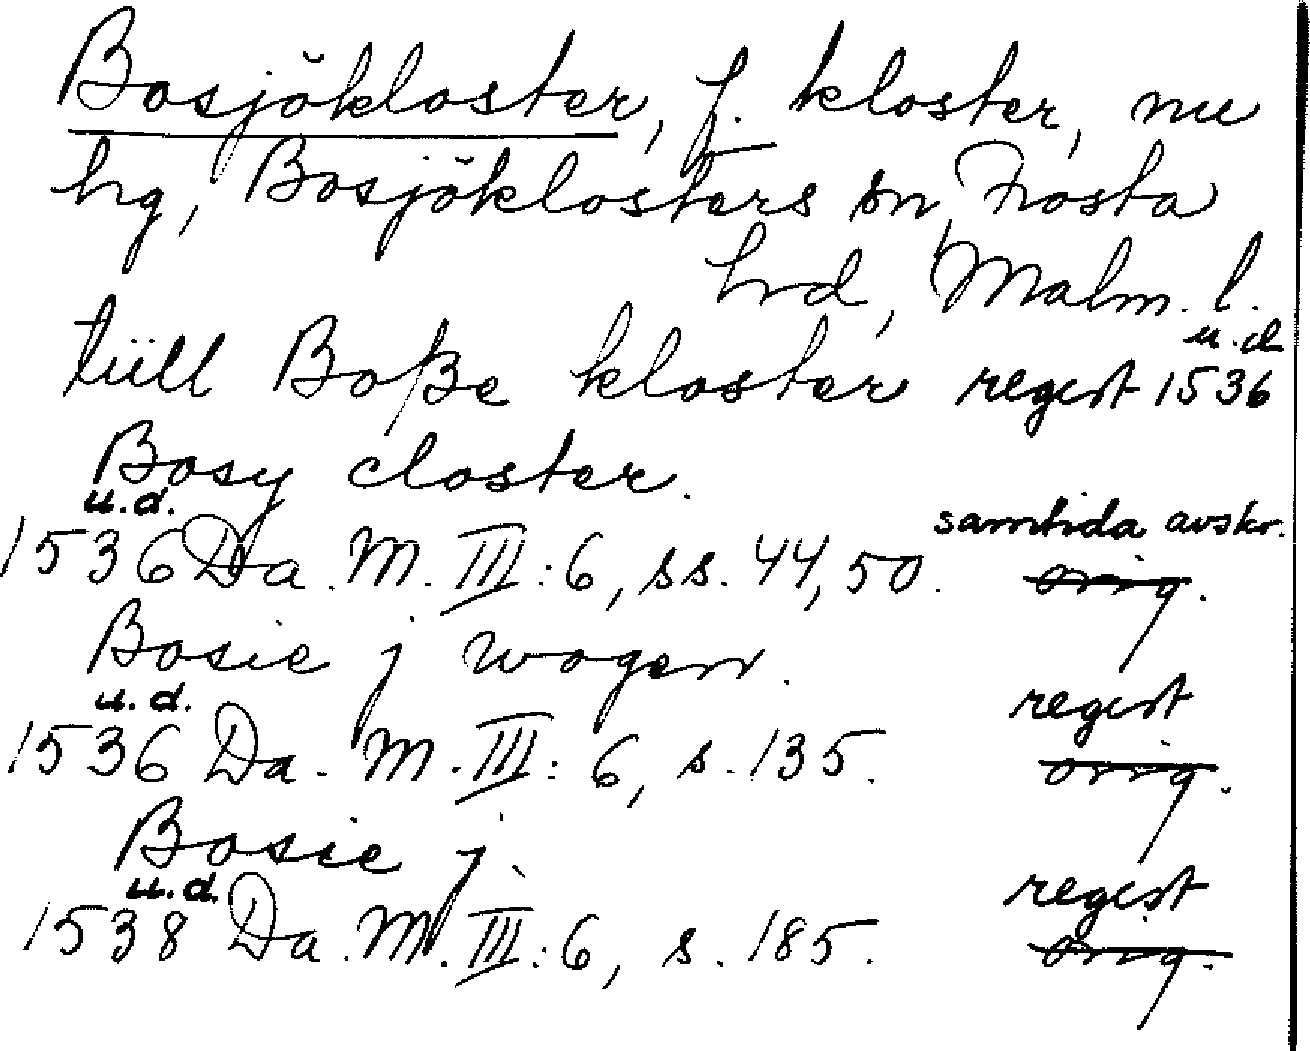 Bosjökloster, f. kloster, nu
hg, Bosjöklosters sn, Frosta
hrd, Malm. l.
u. d.
tiill Boße kloster regest 1536
Bosy closter.
u. d. samtida avskr.
1536 Da. M. III: 6, ss. 44, 50. orig.
Bosie j wogen.
u. d. regest
1536 Da. M. III: 6, s. 135. orig.
Bosie j.
u. d. regest
1538 Da. M. III: 6, s. 185. orig.